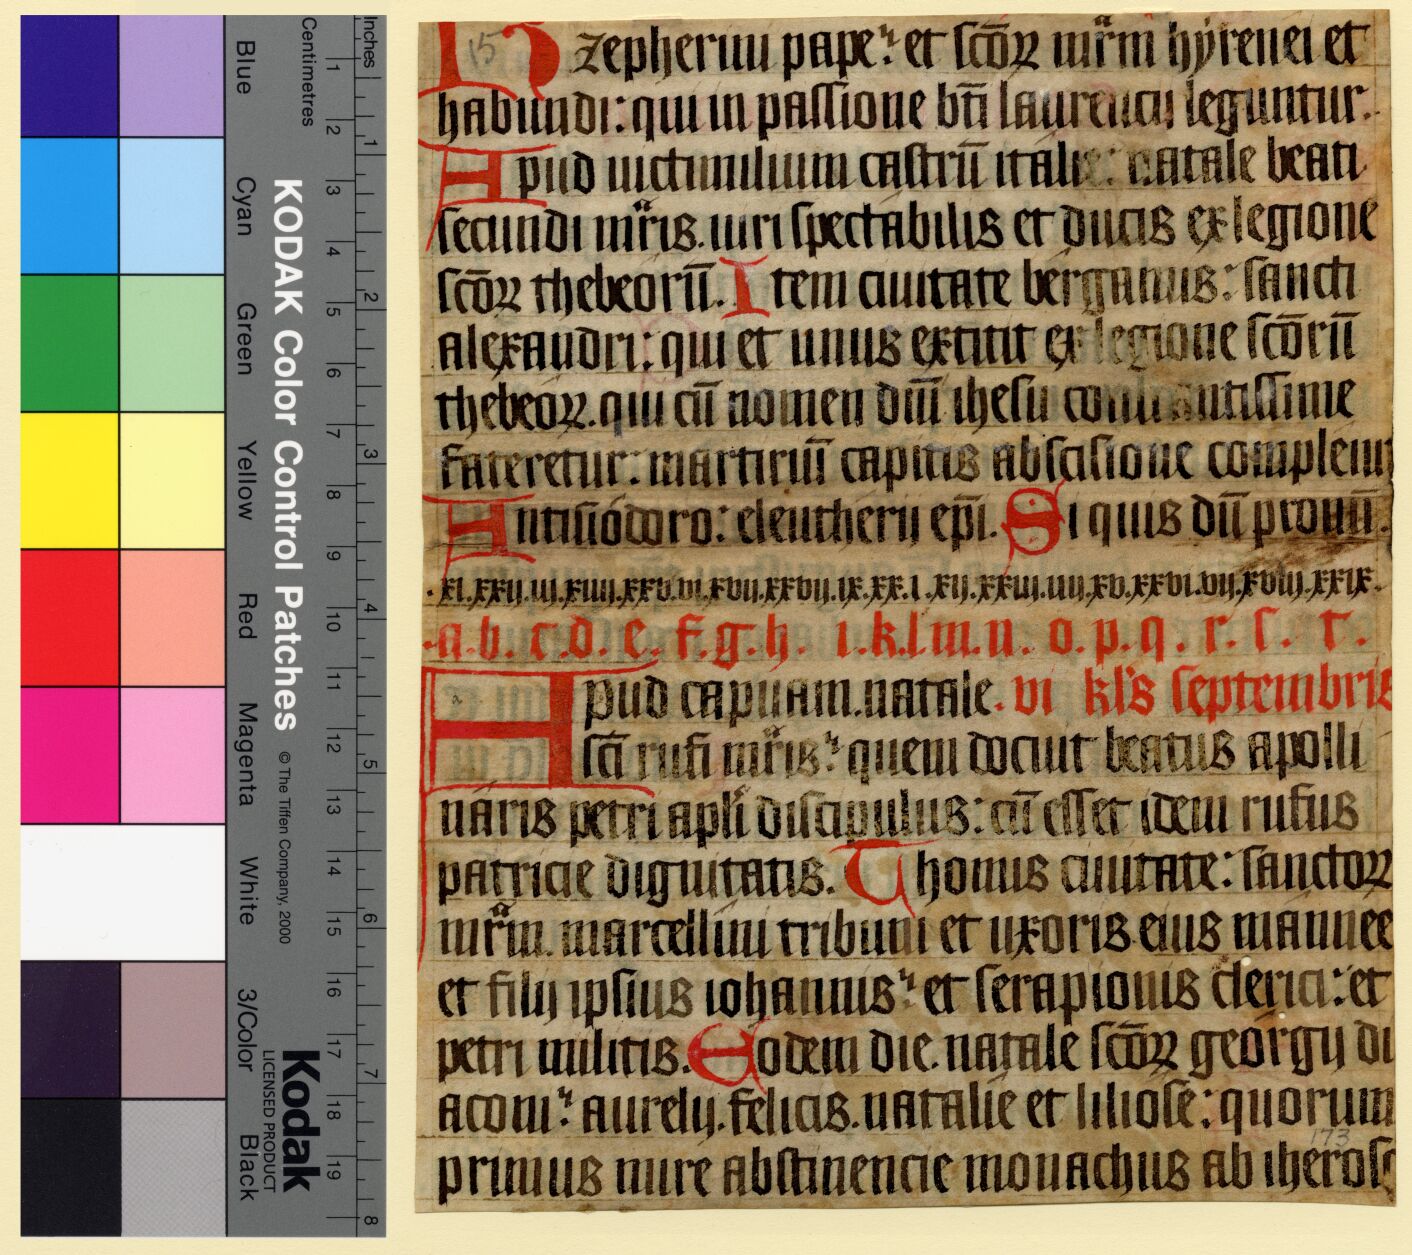 Blue
Cyan
Green
Yellow
Red
Magenta
White
3/Color
Black
Centimetres
Inches
KODAK Color Control Patches
© The Tiffen Company, 2000
Kodak
LICENSED PRODUCT
1 2 3 4 5 6 7 8 9 10 11 12 13 14 15 16 17 18 19
1 2 3 4 5 6 7 8
15
R zepherini pape: et scōꝝ mr̄m hyrenei et
habundi: qui in passione bt̄i laurencij leguntur.
Apud uictimilium castrū italie: natale beati
secundi mr̄is. uiri spectabilis et ducis ex legione
scōꝝ thebeorū. Item ciuitate bergamis: sancti
alexandri: qui et unus extitit ex legione scōrū
thebeoꝝ. qui cū nomen dn̄i ihesu constantissime
fateretur: martiriū capitis abscisione compleuit
Antisiódoro: eleutherij ep̄i. Si quis dū pronū.
.xi.xxij.iij.xiiij.xxv.vi.xvij.xxviij.ix.xx.i.xij.xxiij.iiij.xv.xxvi.vij.xviij.xxix.
.a.b.c.d.e.f.g.h. i.k.l.m.n. o.p.q.r.s.t.
Apud capuam. natale. vi kl's septembris
sc̄i rufi mr̄is: quem docuit beatus apolli
naris petri apl̄i discipulus: cū esset idem rufus
patricie dignitatis. Thomis ciuitate: sanctoꝝ
mr̄m. marcellini tribuni et uxoris eius mannee
et filij ipsius iohannis: et serapionis clerici: et
petri militis. Eodem die. natale scōꝝ georgij di
aconi: aurelij. felicis. natalie et liliose: quorum
173
primus mire abstinencie monachus ab iheroso